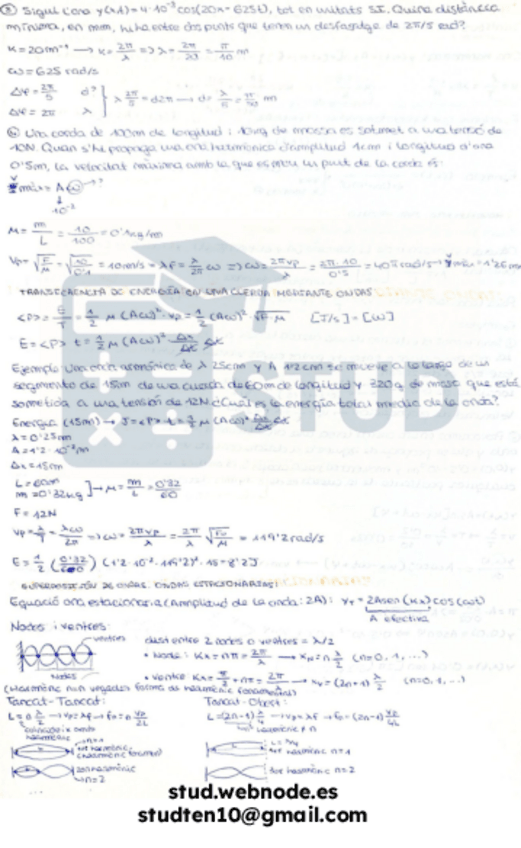 ⑤ Sigui l'ona y(x,t)=4·10⁻³cos(20x-625t), tot en unitats SI. Quina distància
mínima, en mm, hi ha entre dos punts que tenen un desfasatge de 2π/5 rad?
K=20m⁻¹ → K=2π/λ => λ=2π/20=π/10 m
ω=625 rad/s
Δφ=2π/5 d?
Δφ=2π λ
λ 2π/5 = d2π → d=λ/5=π/50 m
⑥ Una corda de 100m de longitud i 10kg de massa es sotmet a una tensió de
10N. Quan s'hi propaga una ona harmònica d'amplitud 1cm i longitud d'ona
0'5m, la velocitat màxima amb la que es mou un punt de la corda és:
Vmàx=Aω ?
10⁻²
μ=m/L=10/100=0'1kg/m
Vp=√(F/μ)=√(10/0'1)=10m/s=λf=λ/2π ω => ω=2πvp/λ=2π·10/0'5=40π rad/s → Vmàx=1'26 m/s
TRANSFERENCIA DE ENERGÍA EN UNA CUERDA MEDIANTE ONDAS
<P>=E/T=1/2 μ(Aω)²·vp=1/2(Aω)²·√F·μ [J/s]=[W]
E=<P>t=1/2 μ(Aω)² Δx/Δt Δt
Ejemplo Una onda armónica de λ 25cm y A 1'2cm se mueve a lo largo de un
segmento de 15m de una cuerda de 60m de longitud y 320g de masa que está
sometida a una tensión de 12N ¿Cuál es la energía total media de la onda?
Energía (15m) → J=<P>·t=1/2 μ(Aω)² Δx/Δt Δt
λ=0'25m
A=1'2·10⁻²m
Δx=15m
L=60m
m=0'32kg
→ μ=m/L=0'32/60
F=12N
vp=λω/2π => ω=2πvp/λ=2π/λ √(F/μ)=1192rad/s
E=1/2 (0'32/60)(1'2·10⁻²·1192)²·15=8'2J
SUPERPOSICIÓN DE ONDAS. ONDAS ESTACIONARIAS
Equació ona estacionaria (Amplitud de la onda: 2A): yT=2Asen(Kx)cos(ωt)
A efectiva
Nodos i ventres:
ventres
Nodes
dist entre 2 nodes o ventres = λ/2
• Node: Kx=nπ → xN=n λ/2 (n=0,1,...)
• Ventre Kx=π/2+nπ → xV=(2n+1) λ/4 (n=0,1,...)
Tancat-Tancat:
L=n λ/2 → vp=λf → f=n vp/2L
n=1
n=2
Tancat-Obert:
L=(2n-1) λ/4 → vp=λf → f=(2n-1) vp/4L
1er harmònic n=1
n=2
stud.webnode.es
studten10@gmail.com
STUD